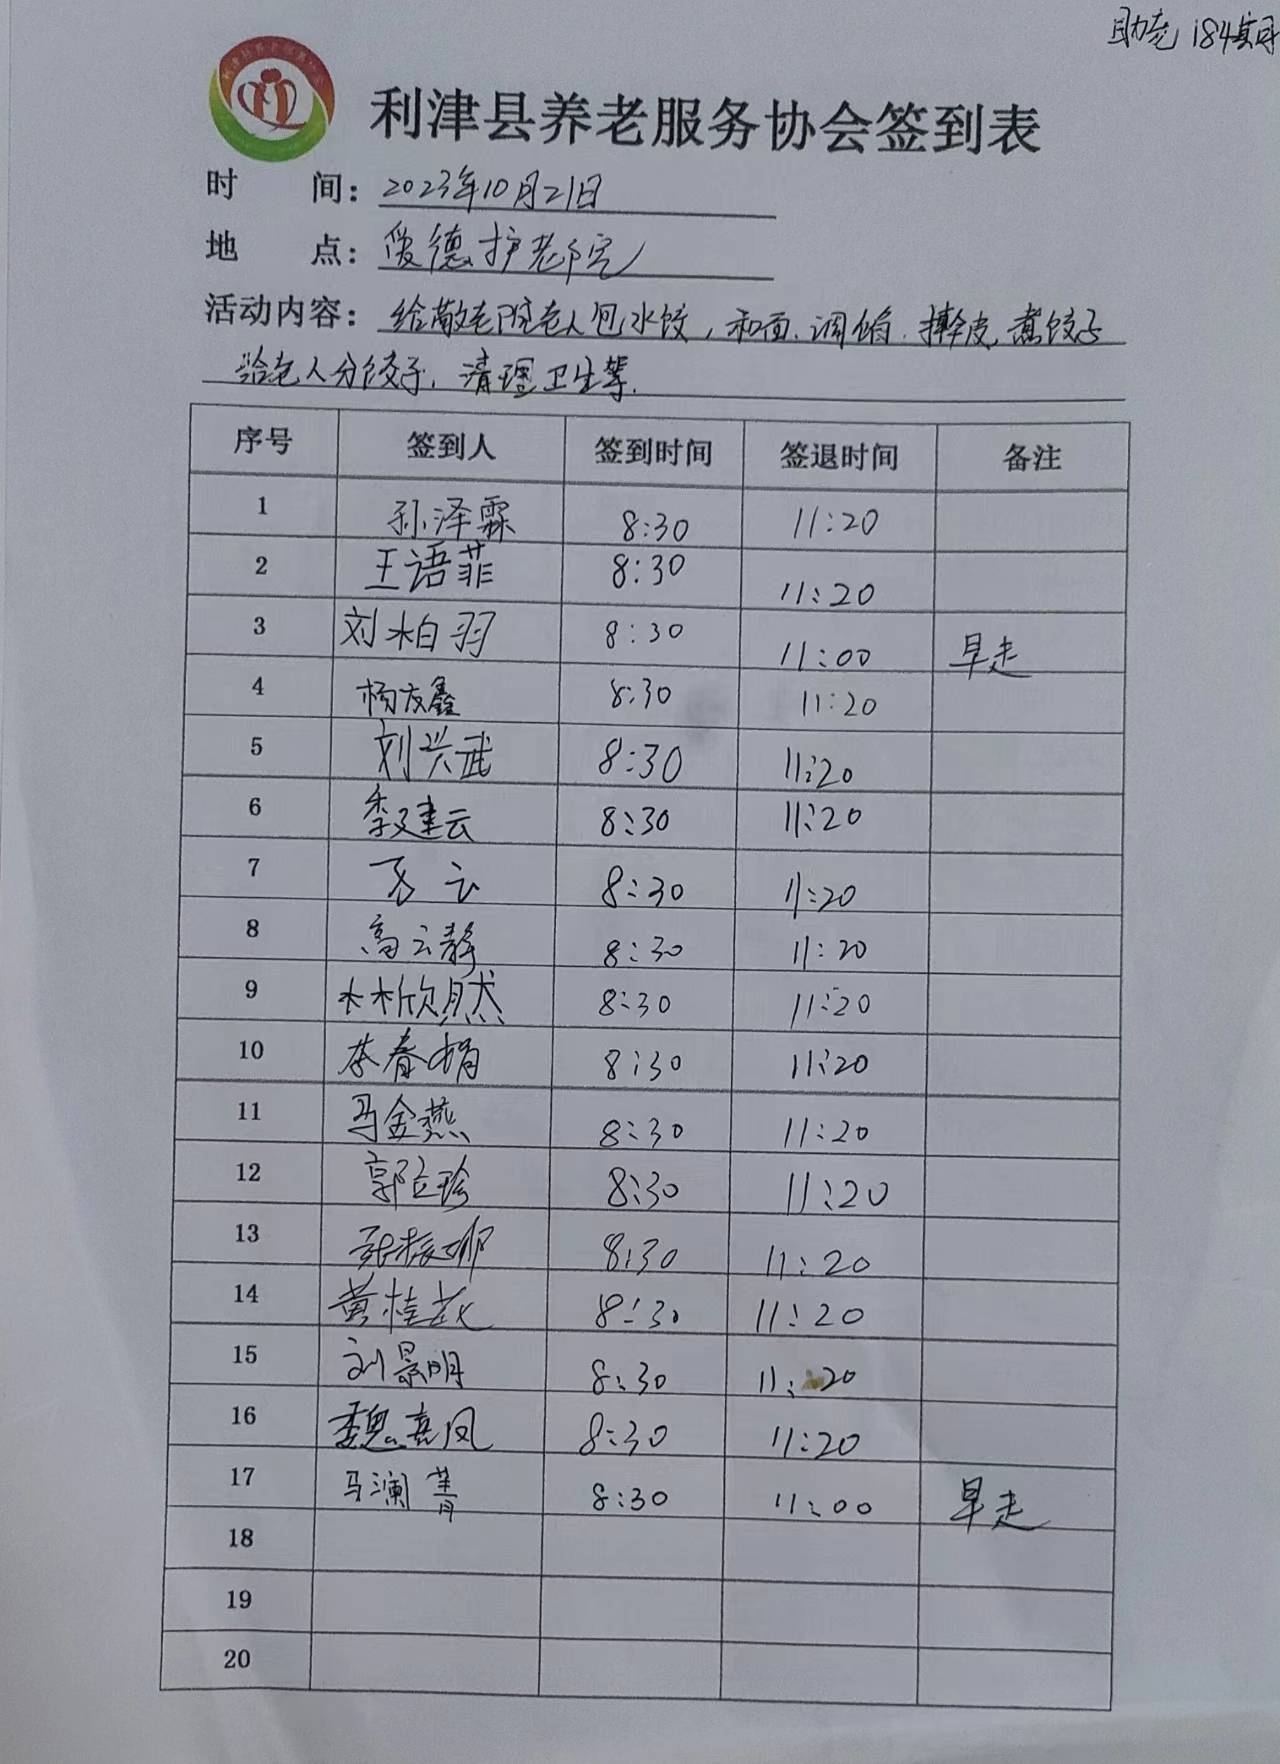 助老184实时
利津县养老服务协会签到表
时 间：2023年10月21日
地 点：爱德护老院
活动内容：给敬老院老人包水饺，和面、调馅、擀皮、煮饺子
给老人分饺子，清理卫生等.
序号 签到人 签到时间 签退时间 备注
1 孙泽霖 8:30 11:20
2 王语菲 8:30 11:20
3 刘柏羽 8:30 11:00 早走
4 杨友鑫 8:30 11:20
5 刘兴武 8:30 11:20
6 季建云 8:30 11:20
7 云 8:30 11:20
8 高云静 8:30 11:20
9 林欣然 8:30 11:20
10 李春娟 8:30 11:20
11 马金燕 8:30 11:20
12 郭立珍 8:30 11:20
13 张振娜 8:30 11:20
14 黄桂花 8:30 11:20
15 刘景明 8:30 11:20
16 魏喜凤 8:30 11:20
17 马澜菁 8:30 11:00 早走
18
19
20